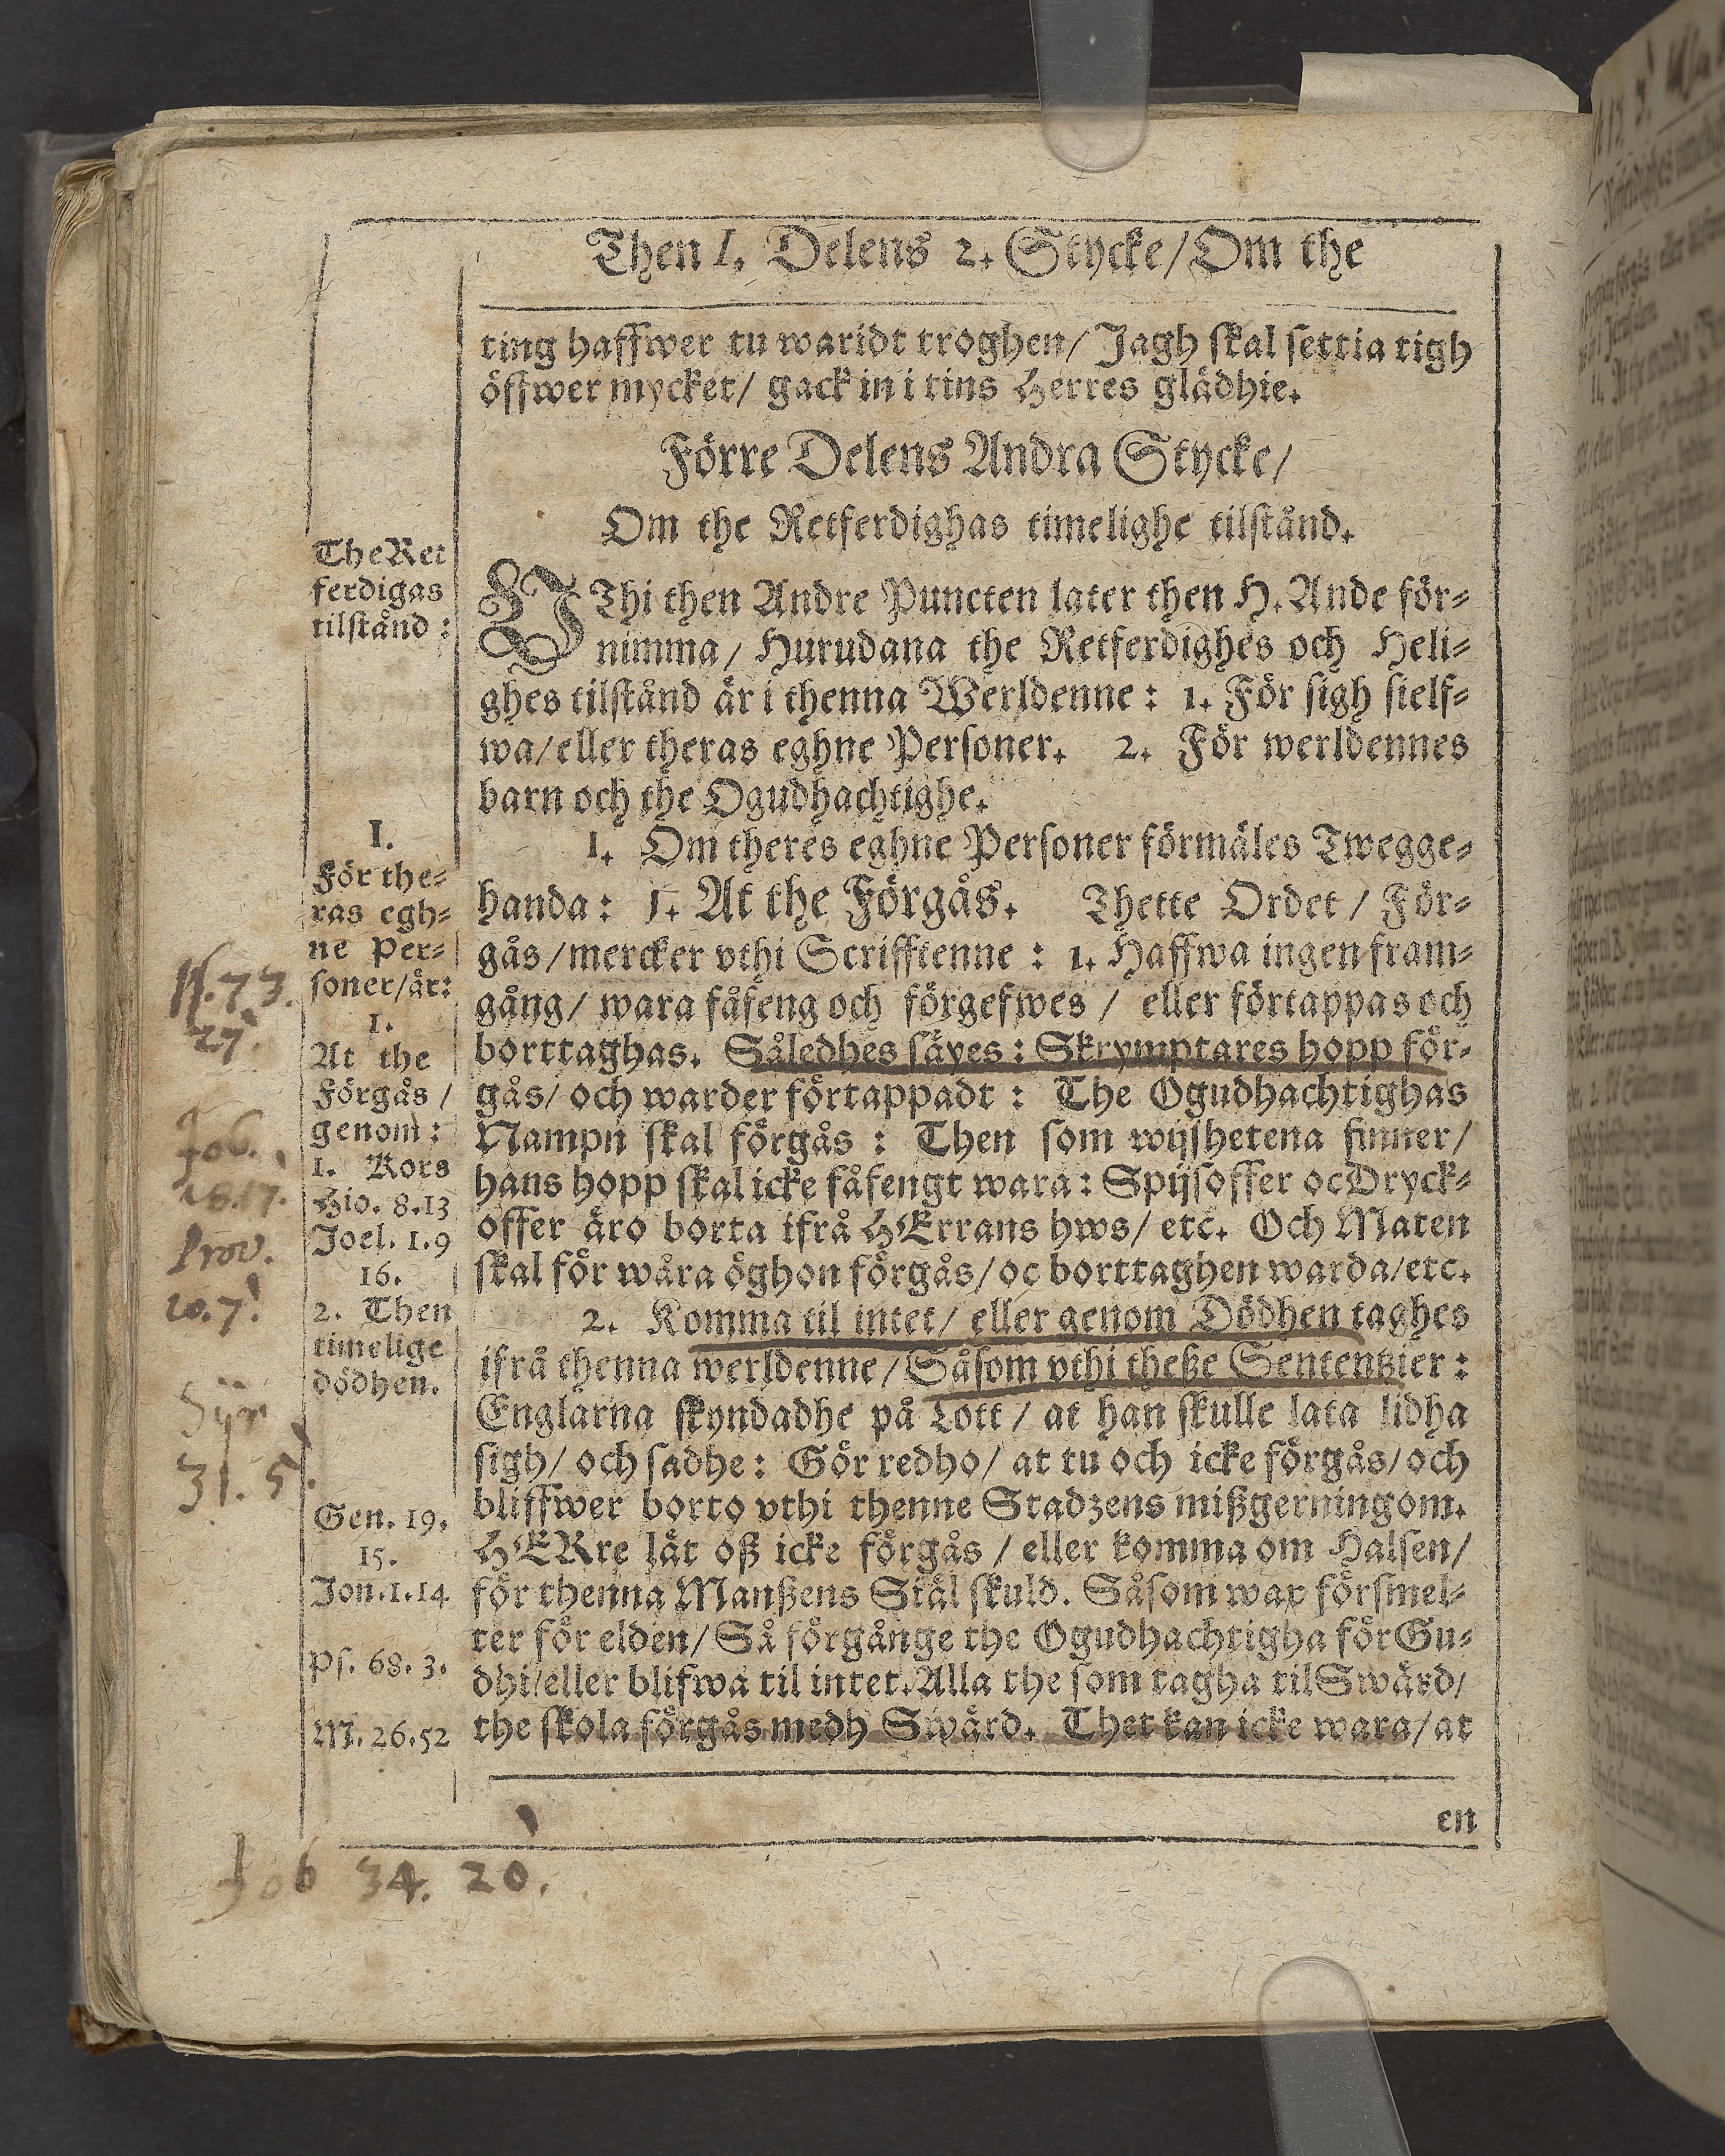 Then I. Delens 2. Stycke/ Om the
ting haffwer tu waridt troghen/ Jagh skal settia tigh
öffwer mycket/ gack in i tins Herres glädhie.
Förre Delens Andra Stycke/
Om the Retferdighas timelighe tilstånd.
The Ret
ferdigas
tilstånd:
VThi then Andre Puncten later then H. Ande för-
nimma/ Hurudana the Retferdighes och Heli-
ghes tilstånd är i thenna Werldenne: 1. För sigh sielf-
wa/ eller theras eghne Personer. 2. För werldennes
barn och the Ogudhachtighe.
I.
För the-
ras egh-
ne Per-
soner/är:
1.
At the
Förgås/
genom:
1. Kors
Hio. 8.13
Joel. 1.9
16.
2. Then
timelige
dödhen.
1. Om theres eghne Personer förmäles Twegge-
handa: 1. At the Förgås. Thette Ordet/ För-
gås/ mercker vthi Scrifftenne: 1. Haffwa ingen fram-
gång/ wara fåfeng och förgefwes/ eller förtappas och
borttaghas. Såledhes säyes: Skrymptares hopp för-
gås/ och warder förtappadt: The Ogudhachtighas
Nampn skal förgås: Then som wijshetena finner/
hans hopp skal icke fåfengt wara: Spijsoffer oc Dryck-
offer äro borta ifrå HErrans hws/ etc. Och Maten
skal för wåra öghon förgås/ oc borttaghen warda/etc.
2. Komma til intet/ eller genom Dödhen taghes
ifrå thenna werldenne/ Såsom vthi theße Sententzier:
Englarna skyndadhe på Lott/ at han skulle lata lidha
sigh/ och sadhe: Gör redho/ at tu och icke förgås/ och
bliffwer borto vthi thenne Stadzens mißgerningom.
HERre låt oß icke förgås/ eller komma om Halsen/
för thenna Manßens Siäl skuld. Såsom wax försmel-
ter för elden/ Så förgånge the Ogudhachtigha för Gu-
dhi/eller blifwa til intet. Alla the som tagha til Swärd/
the skola förgås medh Swärd. Thet kan icke wara/ at
Gen. 19.
15.
Jon. 1.14
Ps. 68. 3.
M. 26.52
en
Ps. 73.
27.
Job.
18.17.
Prov.
10.7.
Syr
31. 5.
Job 34. 20.